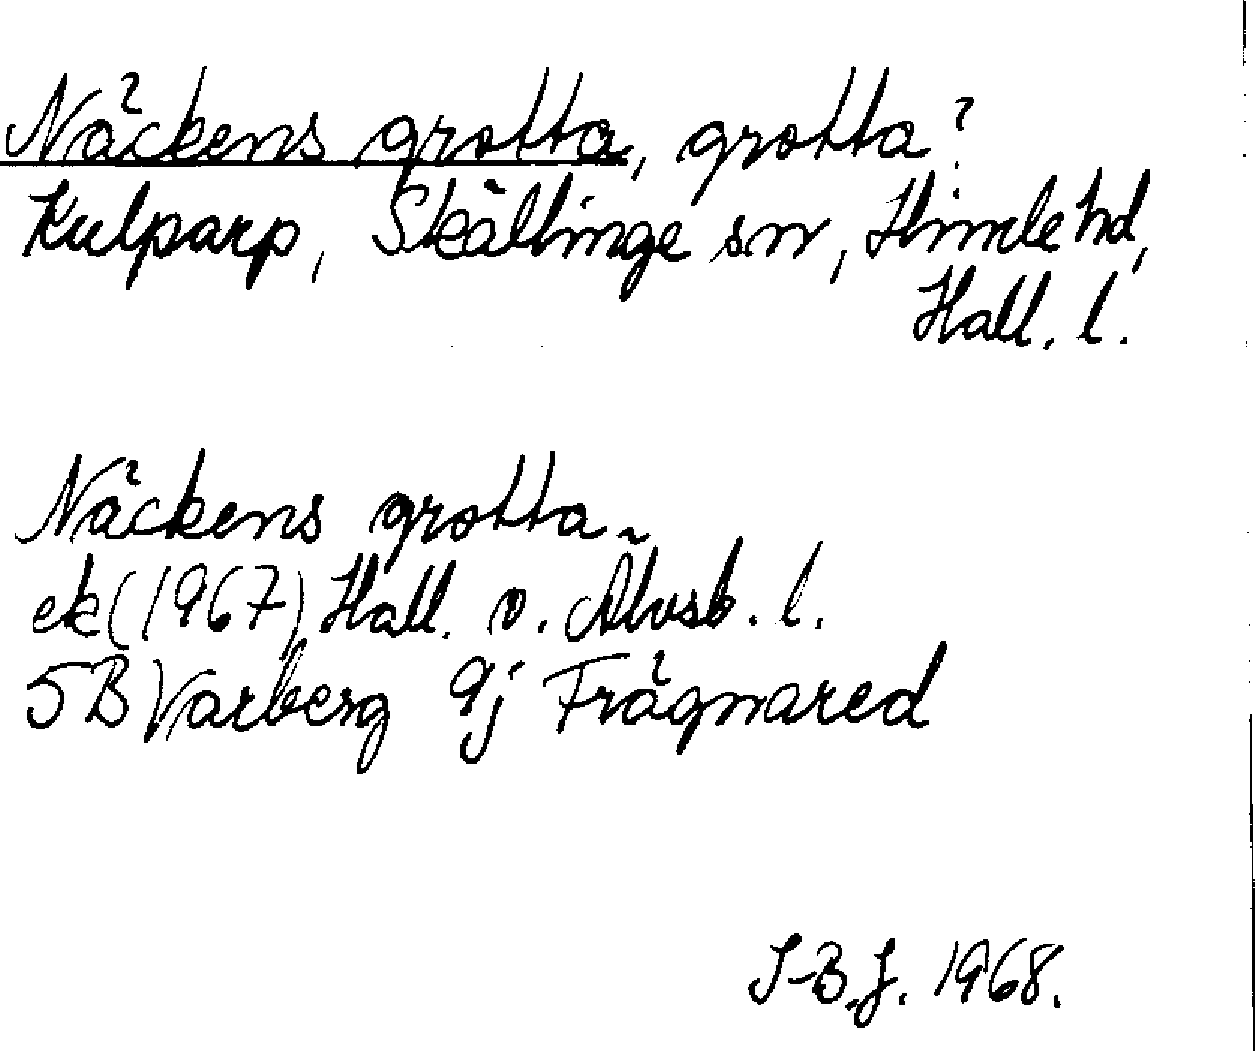 Näckens grotta, grotta?
Kulparp, Skällinge sn, Himle hd,
Hall. l.
Näckens grotta
ek (1967) Hall. o. Älvsb. l.
5B Varberg 9j Frägnared
I-B.J. 1968.